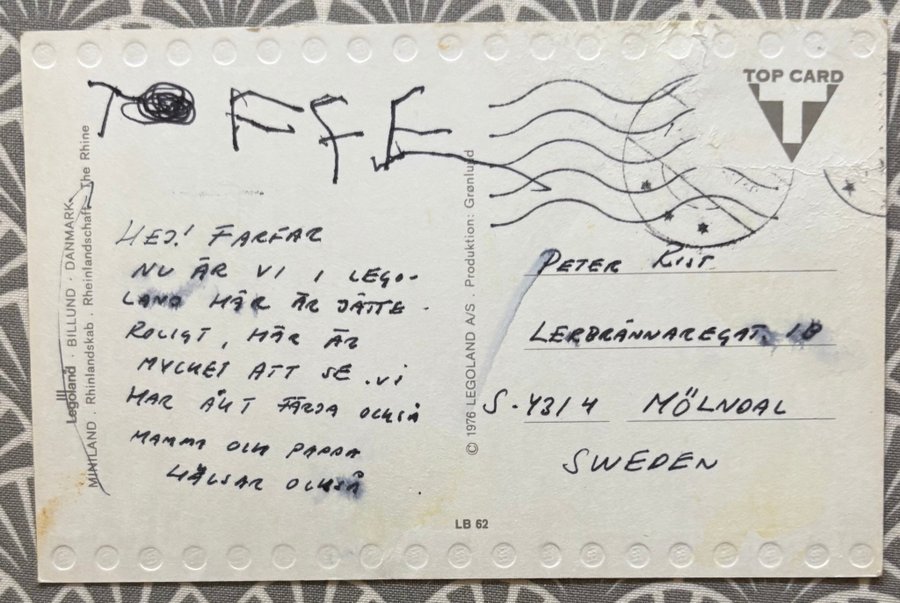 TOP CARD
T
TO FFE
HEJ! FARFAR
NU ÄR VI I LEGO-
LAND HÄR ÄR JÄTTE-
ROLIGT, HÄR ÄR
MYCKET ATT SE. VI
HAR ÅKT FÄRJA OCKSÅ
MAMMA OCH PAPPA
HÄLSAR OCKSÅ
PETER RIST.
LERBRÄNNAREGAT. 1B
S-4314 MÖLNDAL
SWEDEN
Legoland · BILLUND · DANMARK
MINILAND . Rhinlandskab . Rheinlandschaft . The Rhine
© 1976 LEGOLAND A/S . Produktion: Grønlund
LB 62